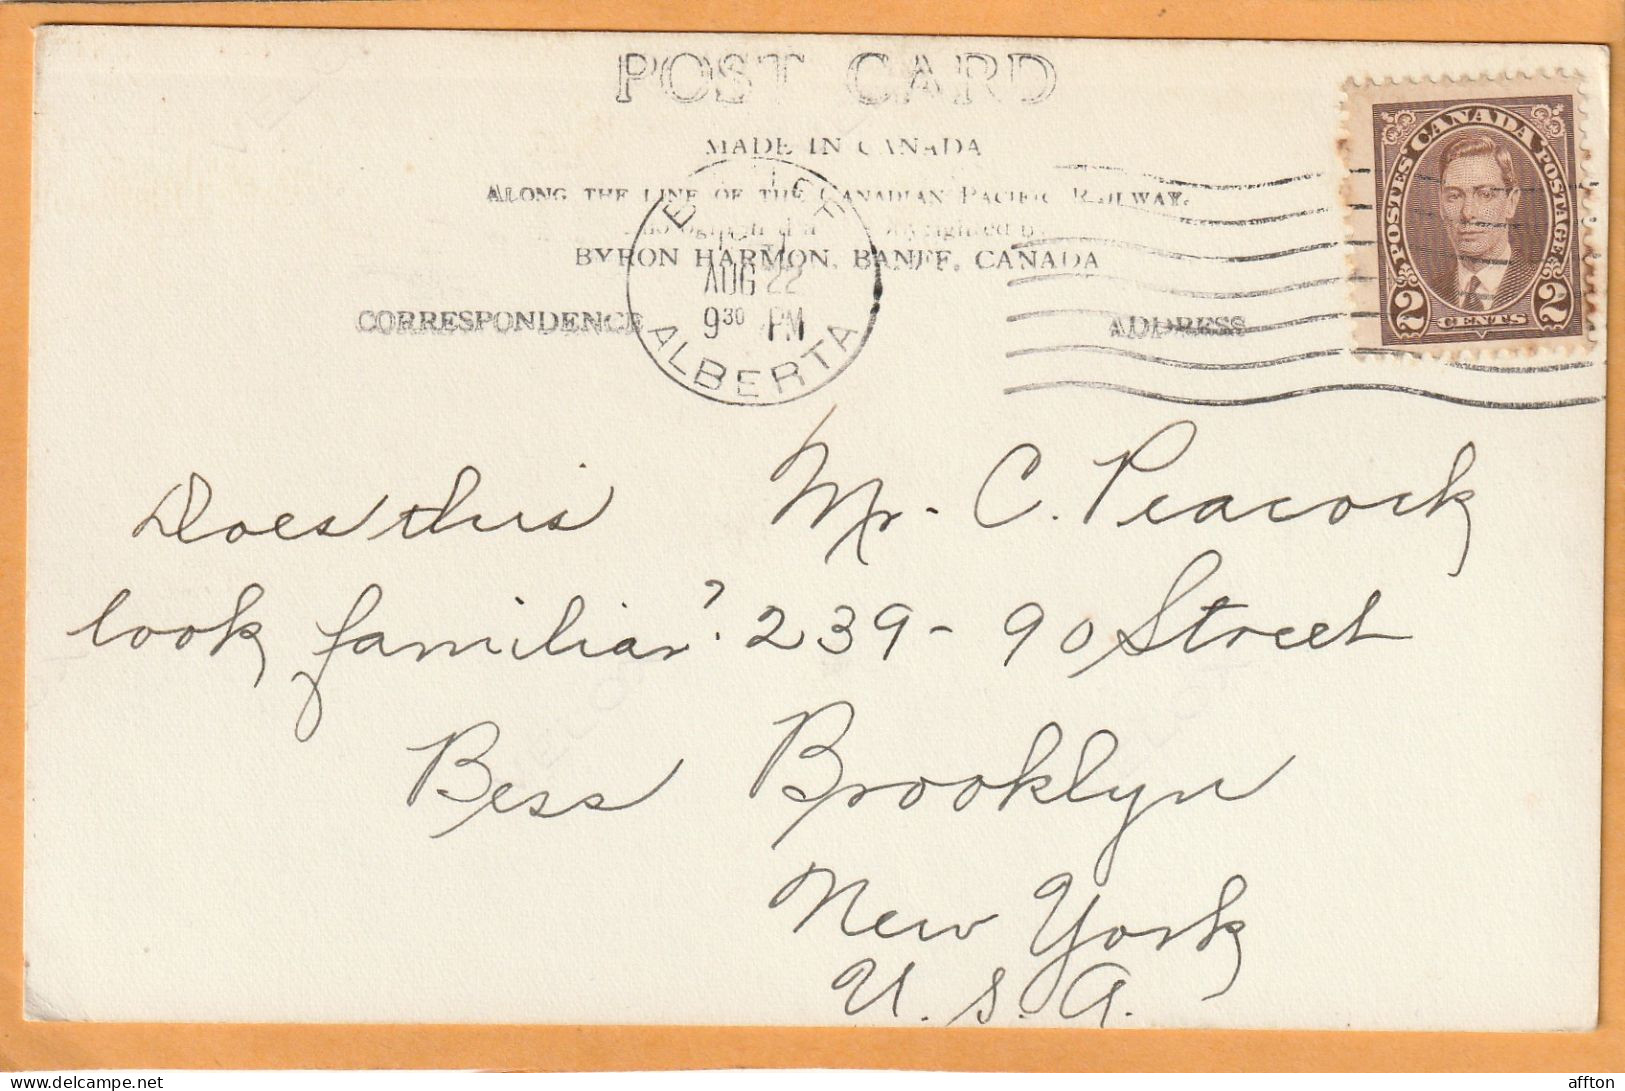 POST CARD
MADE IN CANADA
ALONG THE LINE OF THE CANADIAN PACIFIC RAILWAY.
BYRON HARMON, BANFF, CANADA
CORRESPONDENCE
ADDRESS
AUG 22
9 30 PM
ALBERTA
CANADA
POSTES POSTAGE
2 CENTS 2
Does this
look familiar?
Bess
Mr. C. Peacock
239 - 90 Street
Brooklyn
New York
U.S.A.
© affton